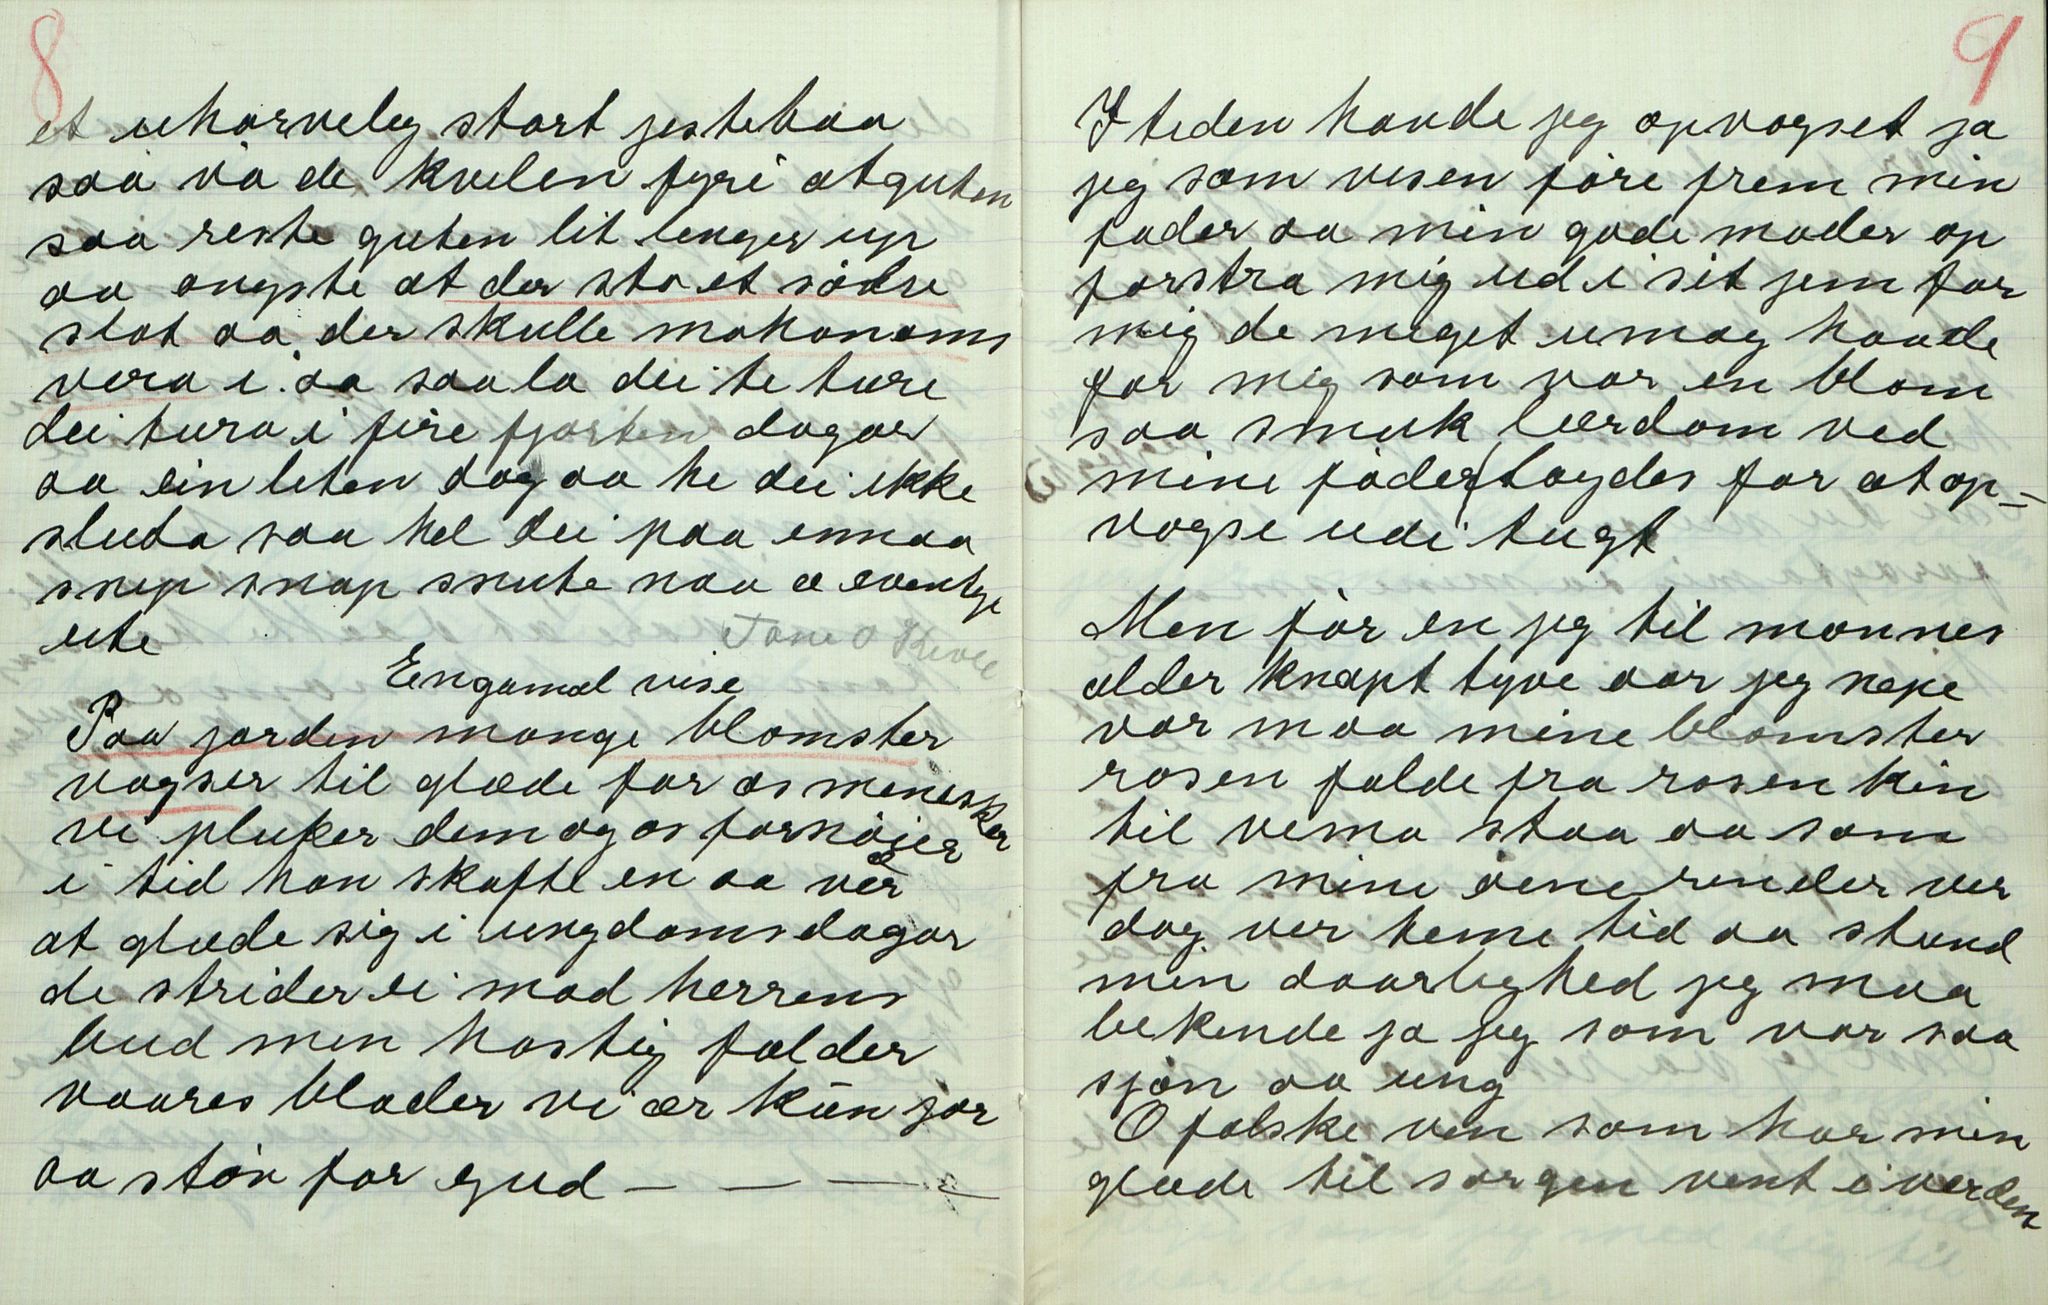 8
et uhorveleg stort jestebaa
saa va de kvelen fyri at guten
saa reste guten lit lenger up
aa ongste at der sto et sòdre
slot aa der skulle mokonoms
vera i aa saa la dei te ture
dei tura i fire fjorten dogar
aa ein leten dag aa he dei ikke
sluta saa hel dei paa ennaa
snip snap snute naa æ eventye
ute
Tone O
Engamal vise
Paa jorden mange blomster
vogser til glæde for os menesker
vi pluker dem og os fornòier
i tid han skafte en aa vèr
at glæde sig i ungdomsdagar
de strider ei mod herrens
bud men hastig falder
vaares blader vi ær kūn jor
aa stòv for gud — — — —
9
I teden havde jeg opvogset ja
jeg som visen fòre frem min
fader aa min gode moder op
forstra mig ud i sit jem for
mig de meget umag havde
for mig som var en blom
saa smuk lærdom ved
mine fòder tòydes for at op-
vogse udi tugt
Men fòr en jeg til mannes
alder knapt tyve aar jeg nepe
var maa mine blomster
rosen falde fra rosen kin
til vema staa aa som
fra mine òine render ver
dag ver teme tid aa stund
min daarlighed jeg maa
bekende ja jeg som var saa
sjòn aa ung
O falske ven som har min
glæde til sorgen vent i verden